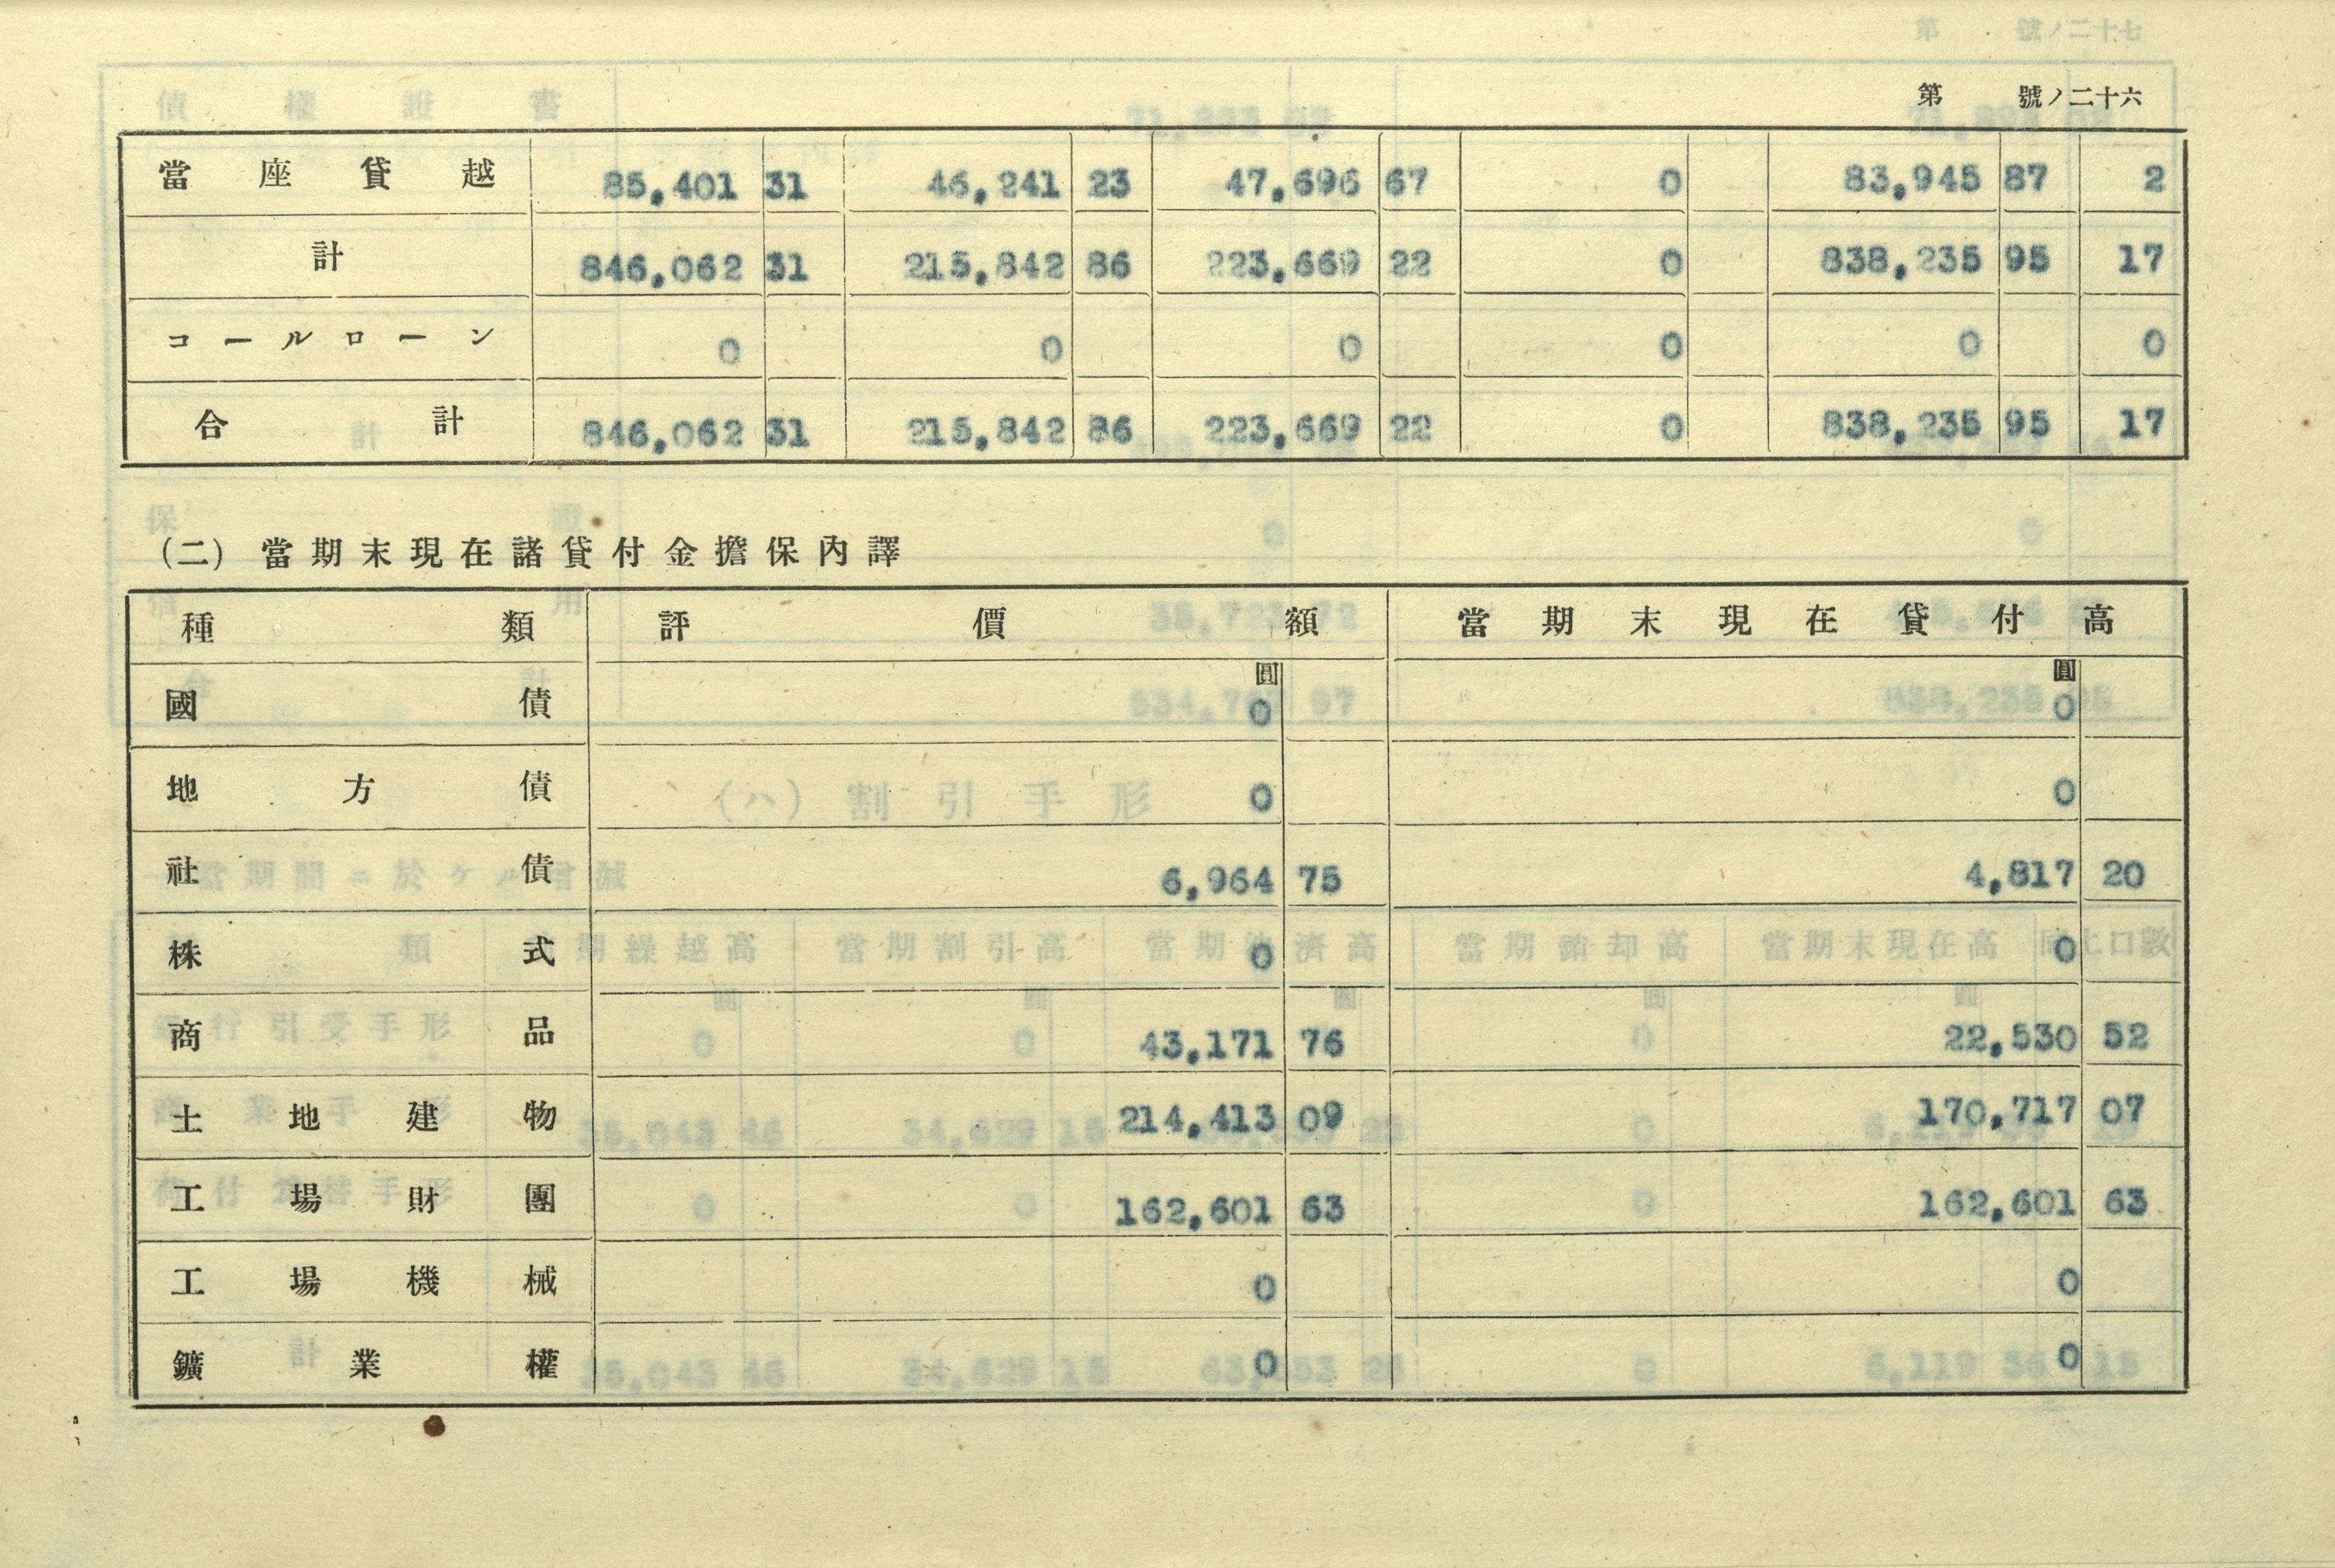 第 號ノ二十六
當座貸越 85,401 31 46,241 23 47,696 67 0 83,945 87 2
計 846,062 31 215,842 86 223,669 22 0 838,235 95 17
コールローン 0 0 0 0 0 0
合計 846,062 31 215,842 86 223,669 22 0 838,235 95 17
(二) 當期末現在諸貸付金擔保內譯
種類 評價額 當期末現在貸付高
圓 圓
國債 0 0
地方債 0 0
社債 6,964 75 4,817 20
株式 0 0
商品 43,171 76 22,530 52
土地建物 214,413 09 170,717 07
工場財團 162,601 63 162,601 63
工場機械 0 0
鑛業權 0 0